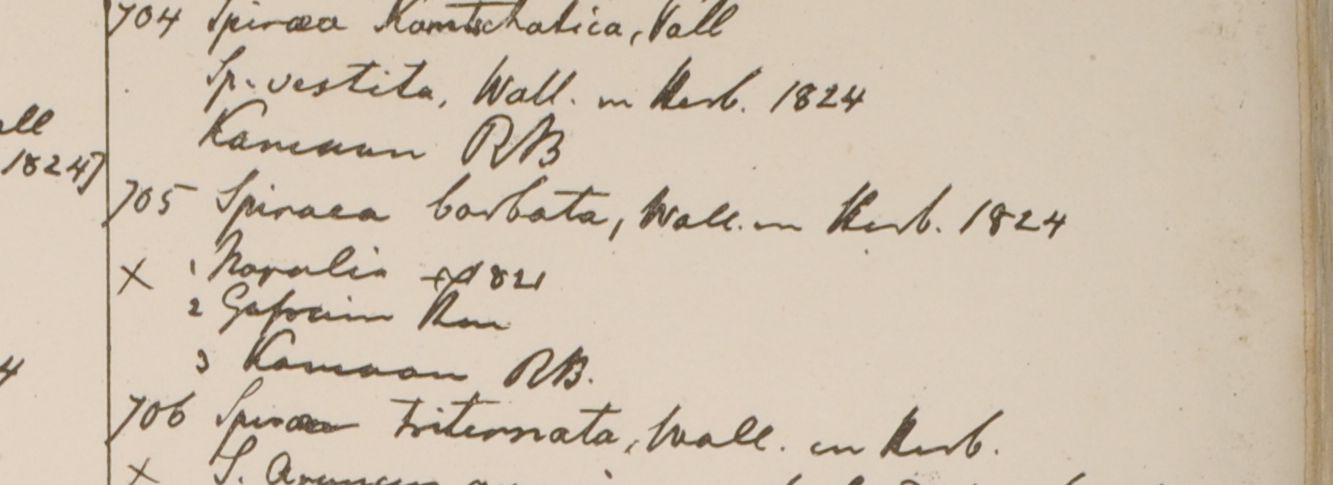 ll
1824)
4
704 Spiraea Kamtschatica, Pall
Sp. vestita, Wall. in Herb. 1824
Kamaon RB
705 Spiraea barbata, Wall. in Herb. 1824
× 1 Napalia 1821
2 Gosain Than
3 Kamaon RB.
706 Spiraea triternata, Wall. in Herb.
× S. Aruncus